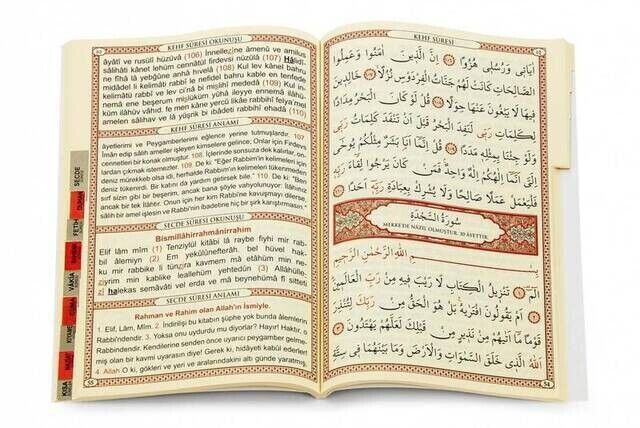 KEHF SÛRESİ OKUNUŞU
âyâtî ve rusulî hüzüvâ (106) İnnellezîne âmenû ve amilus
sâlihâti kânet lehüm cennâtül firdevsi nüzülâ (107) Hâlidî-
(108) Kul lev kânel bahru
midâdel li kelimâti rabbî le nefidel bahru kable en tenfede
kelimâtü rabbî ve lev ci'nâ bi mislihî mededâ (109) Kul in-
nemâ ene beşerum mislüküm yûhâ ileyye ennemâ ilâhü-
küm ilâhüv vâhid, fe men kâne yercû likâe rabbihî felya'mel
amelen sâlihav ve lâ yüşrik bi ibâdeti rabbihî ehadâ (110)
KEHF SÛRESİ ANLAMI
âyetlerimi ve Peygamberlerimi eğlence yerine tutmuşlardır. 107.
İman edip salih ameller işleyen kimselere gelince; Onlar için Firdevs
cennetleri bir konak olmuştur. 108. İçlerinde sonsuza dek kalırlar, on-
lardan çıkmak istemezler. 109. De ki: "Eğer Rabbim'in kelimeleri için
deniz mürekkeb olsa idi, herhalde Rabbim'in kelimeleri tükenmeden
deniz tükenirdi. Bir katını da yardım getirsek bile." 110. De ki: "Ben
sırf sizin gibi bir beşerim, ancak bana şöyle vahyolunuyor: İlâhınız
ancak bir tek İlâhtır. Onun için her kim Rabbi'ne kavuşmayı dilerse,
salih bir amel işlesin ve Rabbi'nin ibadetine hiç bir şirk karıştırmasın."
SECDE SÛRESİ OKUNUŞU
Bismillâhirrahmânirrahim
Elif lâm mîm (1) Tenzîylül kitâbi lâ raybe fîhi mir rab-
bil âlemîyn (2) Em yekûlûnefterâh, bel hüvel hak-
ku mir rabbike li tünzira kavmem mâ etâhüm min ne-
zîyrim min kablike leallehüm yehtedûn (3) Allâhülle-
zî halekas semâvâti vel erda ve mâ beynehümâ fî sitteti
SECDE SÛRESİ ANLAMI
Rahman ve Rahim olan Allah'ın İsmiyle.
1. Elif, Lâm, Mîm. 2. İndirilişi bu kitabın şüphe yok bunda âlemlerin
Rabbi'ndendir. 3. Yoksa onu uydurdu mu diyorlar? Hayır! Haktır, o
Rabbi'ndendir. Kendilerine senden önce uyarıcı peygamber gelme-
miş olan bir kavmi uyarasın diye! Gerek ki, hidâyeti kabûl ederler!
4. Allah O ki, gökleri ve yeri ve aralarındakini altı günde yaratmış,
55
KEHF SÛRESİ
اٰيَاتٖي وَرُسُلٖي هُزُوًا اِنَّ الَّذٖينَ اٰمَنُوا وَعَمِلُوا
الصَّالِحَاتِ كَانَتْ لَهُمْ جَنَّاتُ الْفِرْدَوْسِ نُزُلًا خَالِدٖينَ
فٖيهَا لَا يَبْغُونَ عَنْهَا حِوَلًا قُلْ لَوْ كَانَ الْبَحْرُ مِدَادًا
لِكَلِمَاتِ رَبّٖي لَنَفِدَ الْبَحْرُ قَبْلَ اَنْ تَنْفَدَ كَلِمَاتُ رَبّٖي
وَلَوْ جِئْنَا بِمِثْلِهٖ مَدَدًا قُلْ اِنَّمَا اَنَا بَشَرٌ مِثْلُكُمْ يُوحٰى
اِلَيَّ اَنَّمَا اِلٰهُكُمْ اِلٰهٌ وَاحِدٌ فَمَنْ كَانَ يَرْجُوا لِقَاءَ رَبِّهٖ
فَلْيَعْمَلْ عَمَلًا صَالِحًا وَلَا يُشْرِكْ بِعِبَادَةِ رَبِّهٖ اَحَدًا
سُورَةُ السَّجْدَةِ
MEKKE'DE NÂZİL OLMUŞTUR. 30 ÂYETTİR.
بِسْمِ اللّٰهِ الرَّحْمٰنِ الرَّحٖيمِ
الٓمٓ تَنْزٖيلُ الْكِتَابِ لَا رَيْبَ فٖيهِ مِنْ رَبِّ الْعَالَمٖينَ
اَمْ يَقُولُونَ افْتَرٰيهُ بَلْ هُوَ الْحَقُّ مِنْ رَبِّكَ لِتُنْذِرَ
قَوْمًا مَا اَتٰيهُمْ مِنْ نَذٖيرٍ مِنْ قَبْلِكَ لَعَلَّهُمْ يَهْتَدُونَ
اَللّٰهُ الَّذٖي خَلَقَ السَّمٰوَاتِ وَالْاَرْضَ وَمَا بَيْنَهُمَا فٖي سِتَّةِ
54
SECDE
DUHAN
FETİH
VÂKIA